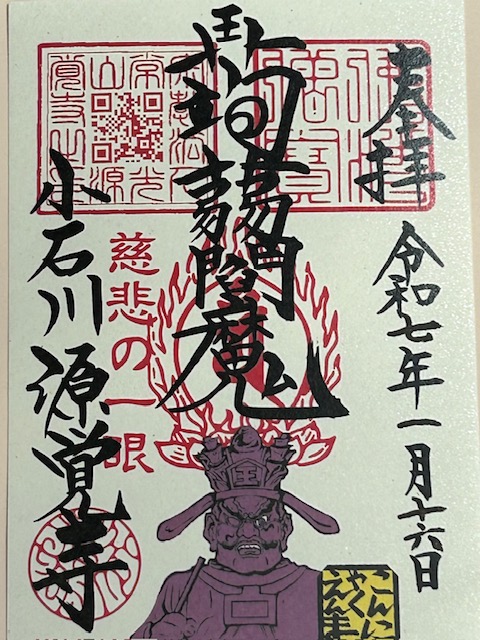 奉拝
令和七年一月十六日
佛法僧寶
蒟蒻閻魔
慈悲の一眼
小石川源覚寺
こんに
ゃく
えんま